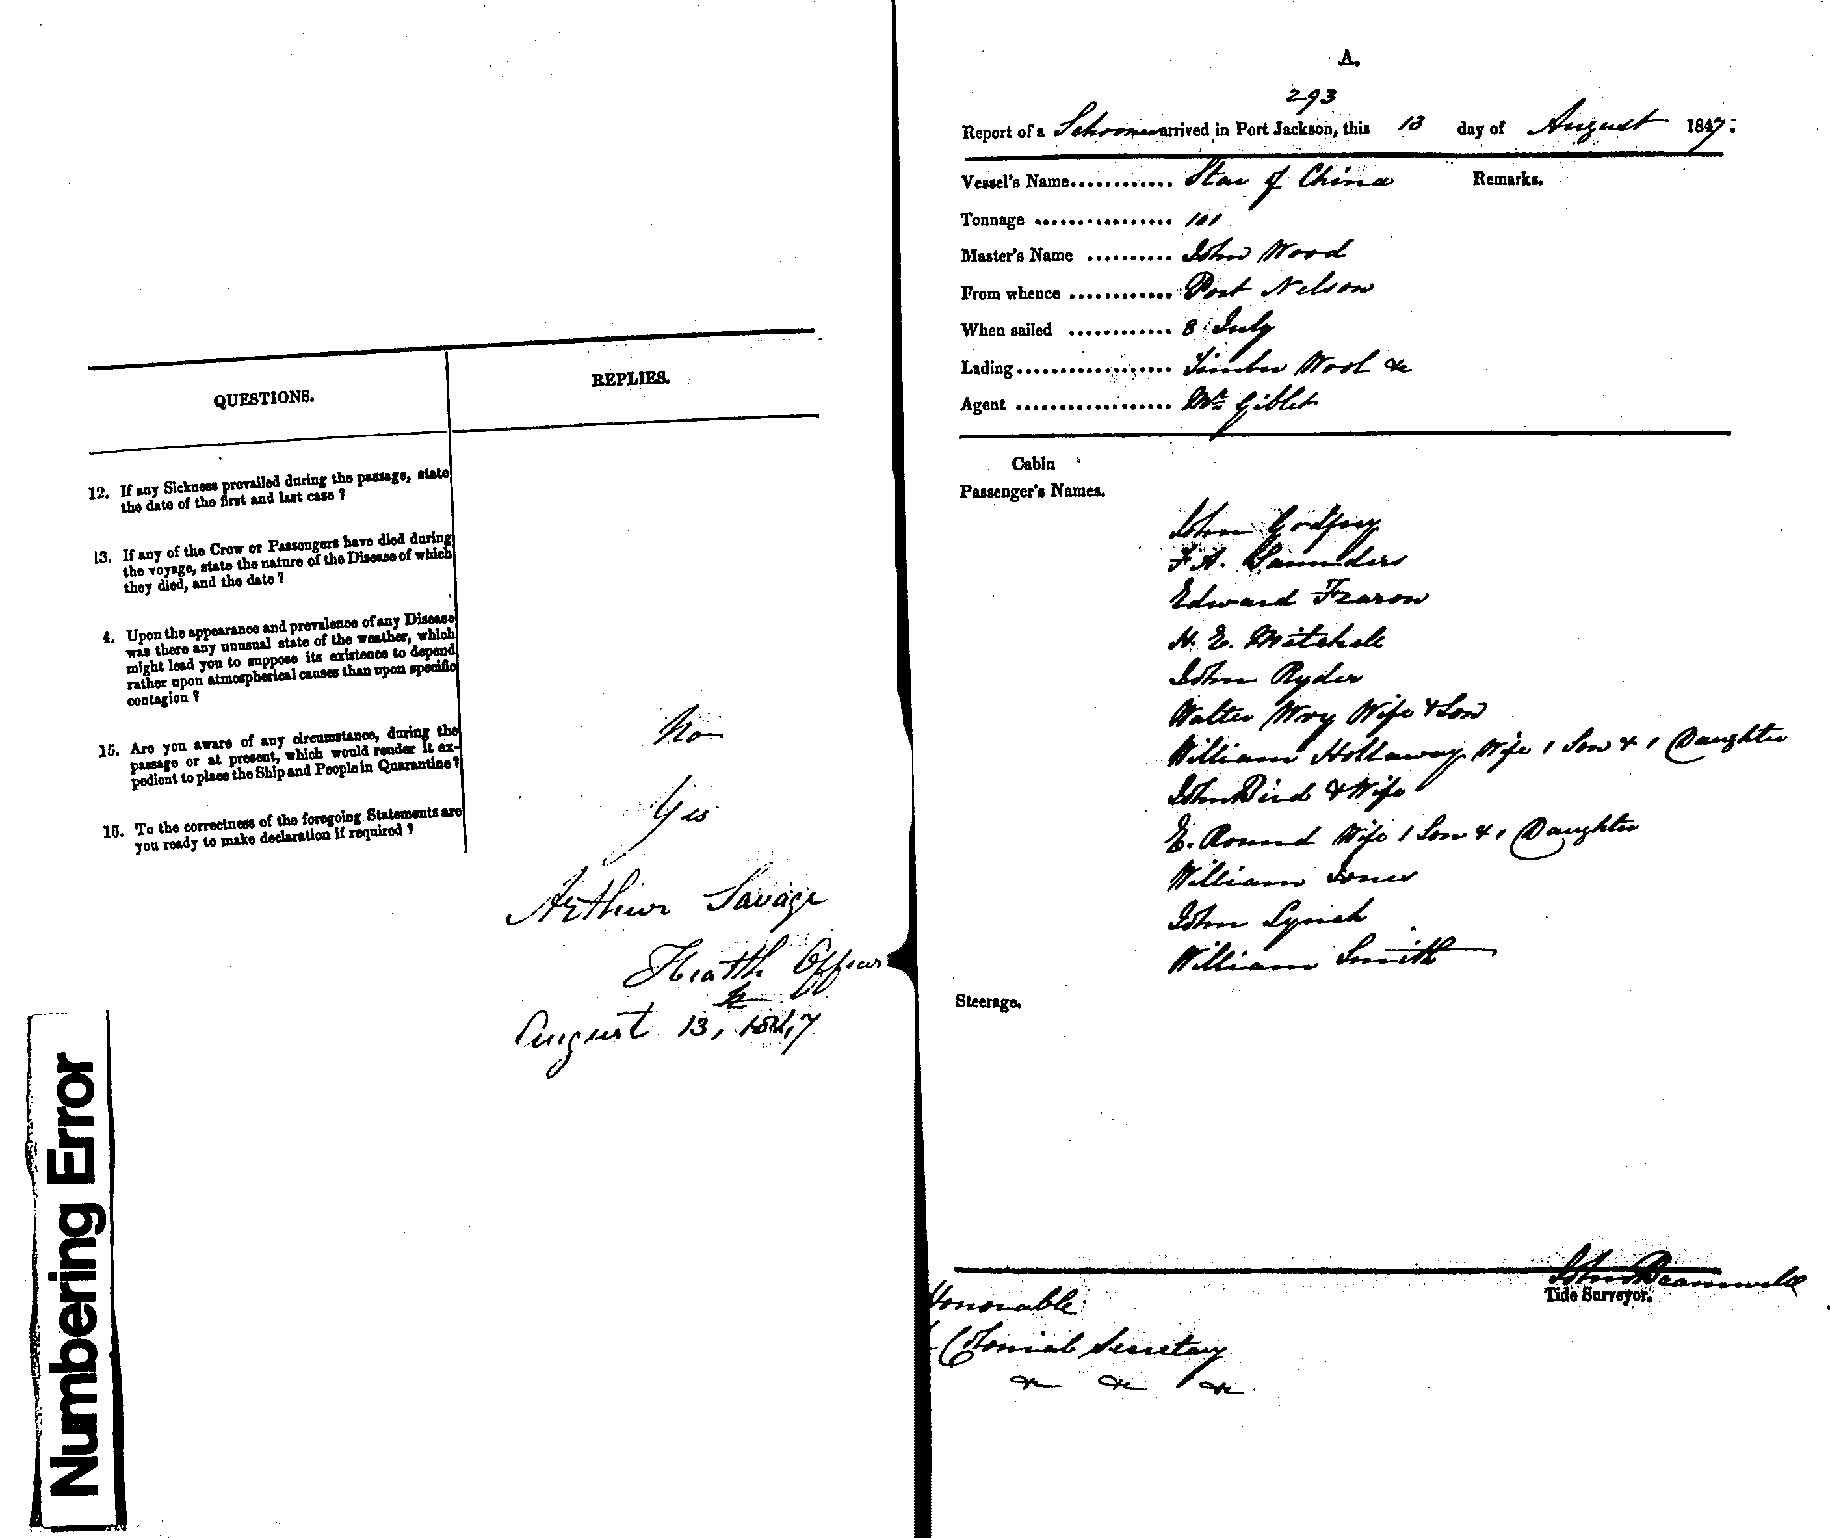 QUESTIONS.
REPLIES.
12. If any Sickness prevailed during the passage, state
the date of the first and last case ?
13. If any of the Crew or Passengers have died during
the voyage, state the nature of the Disease of which
they died, and the date ?
4. Upon the appearance and prevalence of any Disease
was there any unusual state of the weather, which
might lead you to suppose its existence to depend
rather upon atmospherical causes than upon specific
contagion ?
15. Are you aware of any circumstance, during the
passage or at present, which would render it ex-
pedient to place the Ship and People in Quarantine ?
No
16. To the correctness of the foregoing Statements are
you ready to make declaration if required ?
Yes
Arthur Savage
Health Officer
August 13, 1847
Numbering Error
A.
293
Report of a Schooner arrived in Port Jackson, this 13 day of August 1847:
Vessel's Name............ Star of China
Remarks.
Tonnage ................ 101
Master's Name .......... John Wood
From whence ............ Port Nelson
When sailed ............ 8 July
Lading.................. Timber Wool &c
Agent .................. Mr Giblet
Cabin
Passenger's Names.
John Godfrey
F. A. Saunders
Edward Fearon
H. E. Mitchell
John Ryder
Walter Wray Wife & Son
William Hollaway Wife 1 Son & 1 Daughter
John Bird & Wife
E. Round Wife 1 Son & 1 Daughter
William Jones
John Lynch
William Smith
Steerage.
John Bramwell
Tide Surveyor.
Honorable
Colonial Secretary
&c &c &c